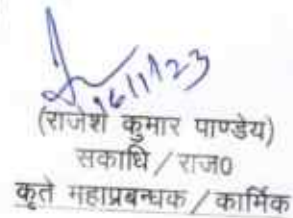 16/11/23
(राजेश कुमार पाण्डेय)
सकाधि / राज०
कृते महाप्रबन्धक / कार्मिक